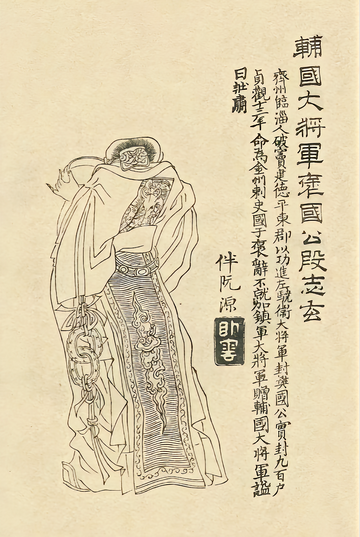 輔國大將軍襃國公段志玄
齊州臨淄人破竇建德平東郡以功進左驍衛大將軍封樊國公實封九百户
貞觀十二年命為金州刺史國于襃辭不就加鎮軍大將軍贈輔國大將軍諡
曰壯肅
伴阮源